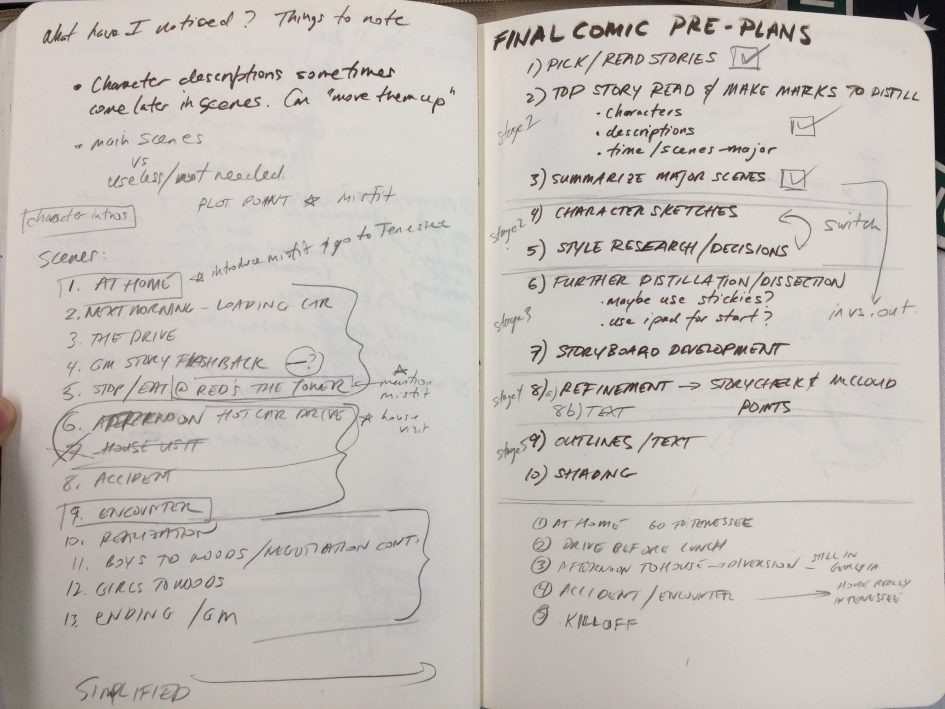 What have I noticed? Things to note
• Character descriptions sometimes
come later in scenes. Can "move them up"
• main scenes
vs
useless/not needed.
PLOT POINT ☆ misfit
character intros
Scenes:
1. AT HOME ☆ introduce misfit & go to Tenessee
2. NEXT MORNING – LOADING CAR
3. THE DRIVE
4. GM STORY FLASHBACK —?
5. STOP/EAT @ RED'S THE TOWER ☆ mention
misfit
6. AFTERNOON HOT CAR DRIVE ☆ house
visit
7. HOUSE VISIT
8. ACCIDENT
9. ENCOUNTER
10. REALIZATION
11. BOYS TO WOODS/NEGOTIATION CONT.
12. GIRLS TO WOODS
13. ENDING/GM
SIMPLIFIED
FINAL COMIC PRE-PLANS
1) PICK/READ STORIES ☑
2) TOP STORY READ & MAKE MARKS TO DISTILL
• characters
stage 1 • descriptions ☑
• time/scenes-major
3) SUMMARIZE MAJOR SCENES ☑
stage 2 4) CHARACTER SKETCHES
switch
5) STYLE RESEARCH/DECISIONS
6) FURTHER DISTILLATION/DISSECTION
• maybe use stickies?
in vs. out.
stage 3 • use ipad for start?
7) STORYBOARD DEVELOPMENT
stage 4 8) a) REFINEMENT → STORYCHECK & McCLOUD
8b) TEXT POINTS
stage 5 9) OUTLINES/TEXT
10) SHADING
① AT HOME GO TO TENESSEE
② DRIVE BEFORE LUNCH
③ AFTERNOON TO HOUSE → DIVERSION – STILL IN
GEORGIA
④ ACCIDENT/ENCOUNTER → HOUSE REALLY
IN TENESSEE
⑤ KILL OFF